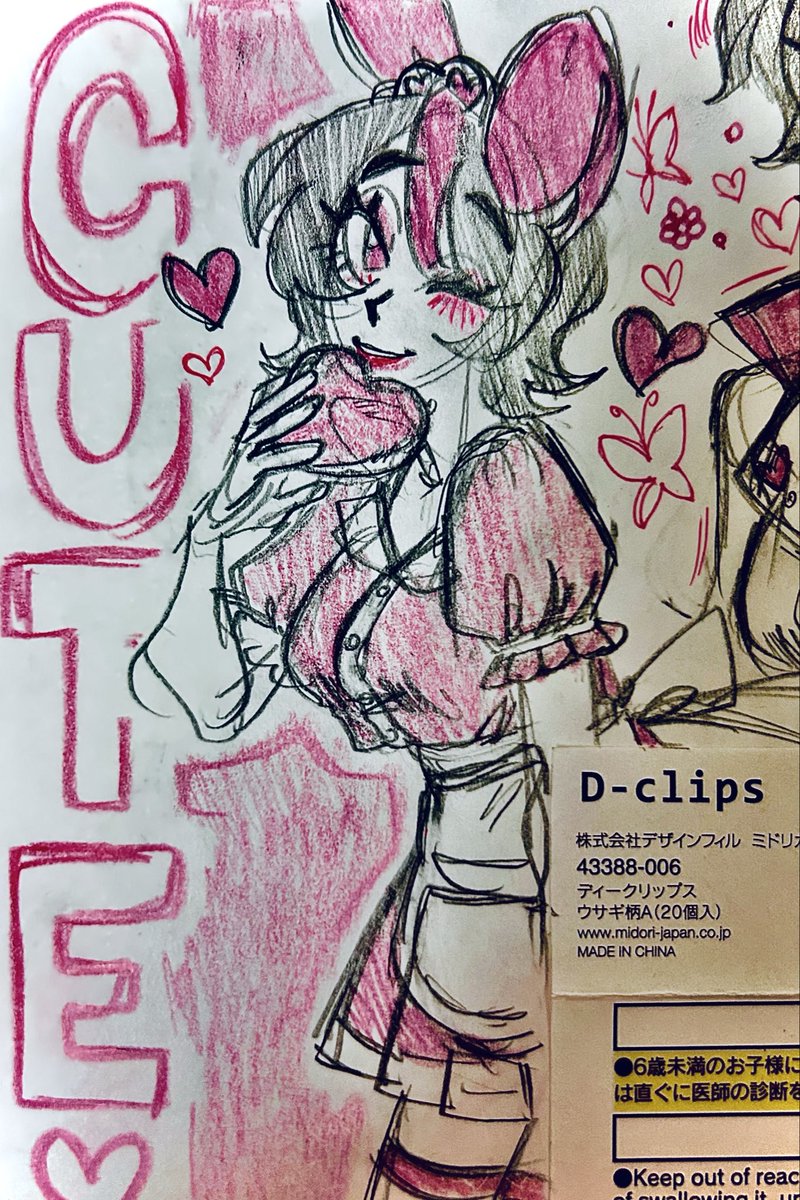 CUTE
D-clips
株式会社デザインフィル ミドリカ
43388-006
ディークリップス
ウサギ柄A(20個入)
www.midori-japan.co.jp
MADE IN CHINA
●6歳未満のお子様に
は直ぐに医師の診断を
●Keep out of reac
of swallowing it, u